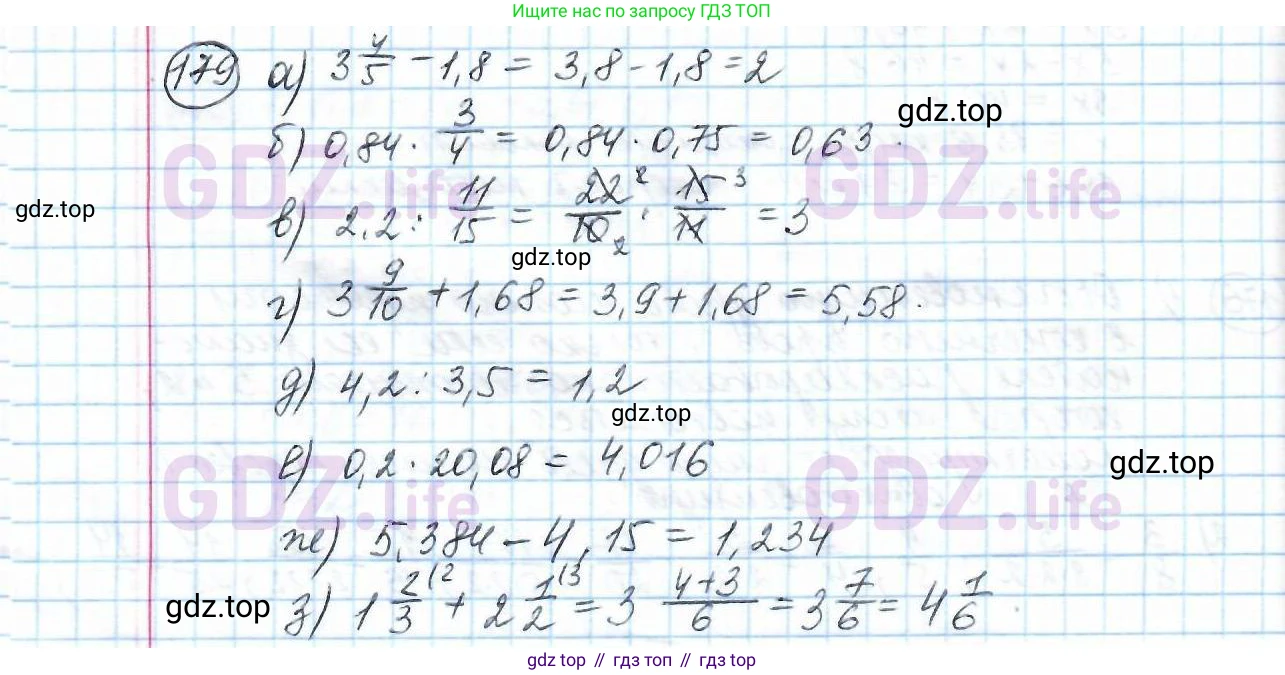 Ищите нас по запросу ГДЗ ТОП
179 а) 3 4/5 - 1,8 = 3,8 - 1,8 = 2
gdz.top
б) 0,84 · 3/4 = 0,84 · 0,75 = 0,63.
GDZ.life GDZ.life
gdz.top
в) 2,2 : 11/15 = 22 2/10 2 · 15 3/11 = 3
gdz.top
г) 3 9/10 + 1,68 = 3,9 + 1,68 = 5,58.
д) 4,2 : 3,5 = 1,2
gdz.top
е) 0,2 · 20,08 = 4,016
gdz.top
GDZ.life GDZ.life
ж) 5,384 - 4,15 = 1,234
gdz.top
з) 1 2/3 (2 + 2 1/2 (3 = 3 4+3/6 = 3 7/6 = 4 1/6.
gdz top // гдз топ // gdz top